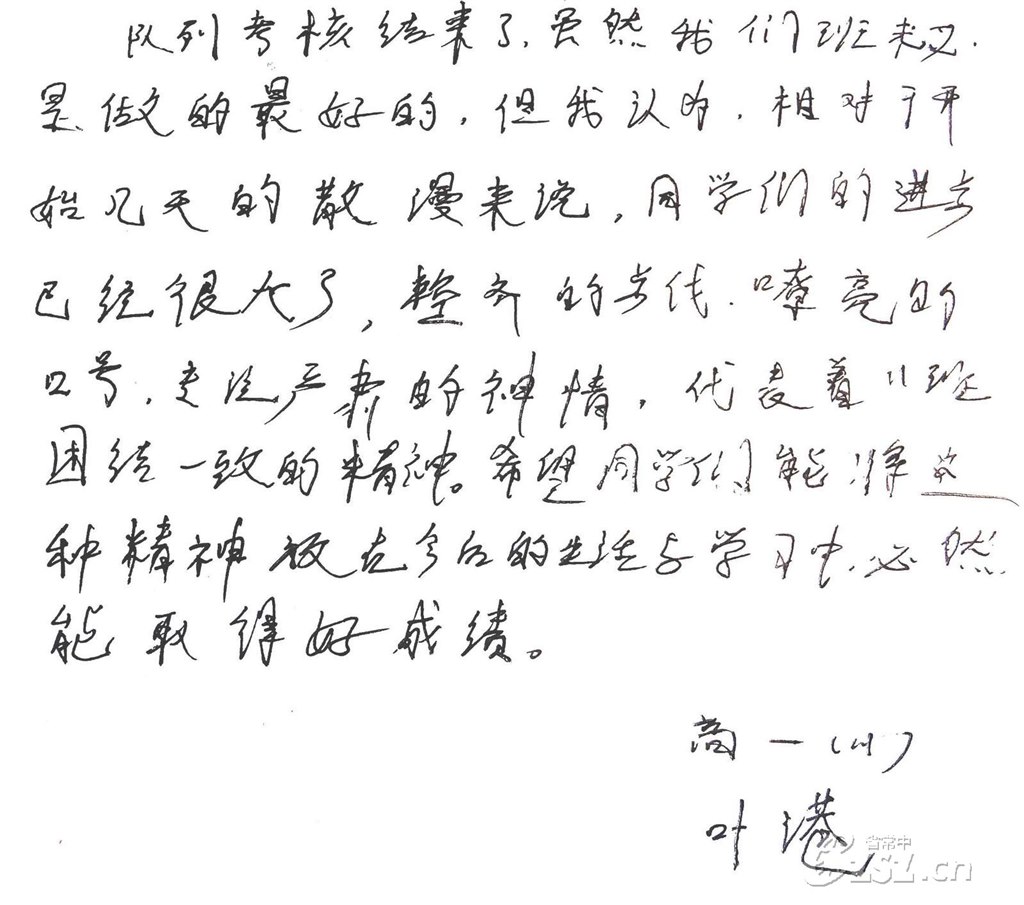 队列考核结束了,虽然我们班未必
是做的最好的,但我认为,相对于开
始几天的散漫来说,同学们的进步
已经很大了,整齐的步伐,嘹亮的
口号,专注严肃的神情,代表着11班
团结一致的精神。希望同学们能将这
种精神放在今后的生活与学习中,必然
能取得好成绩。
高一(11)
叶港
省常中
CZSZ.cn